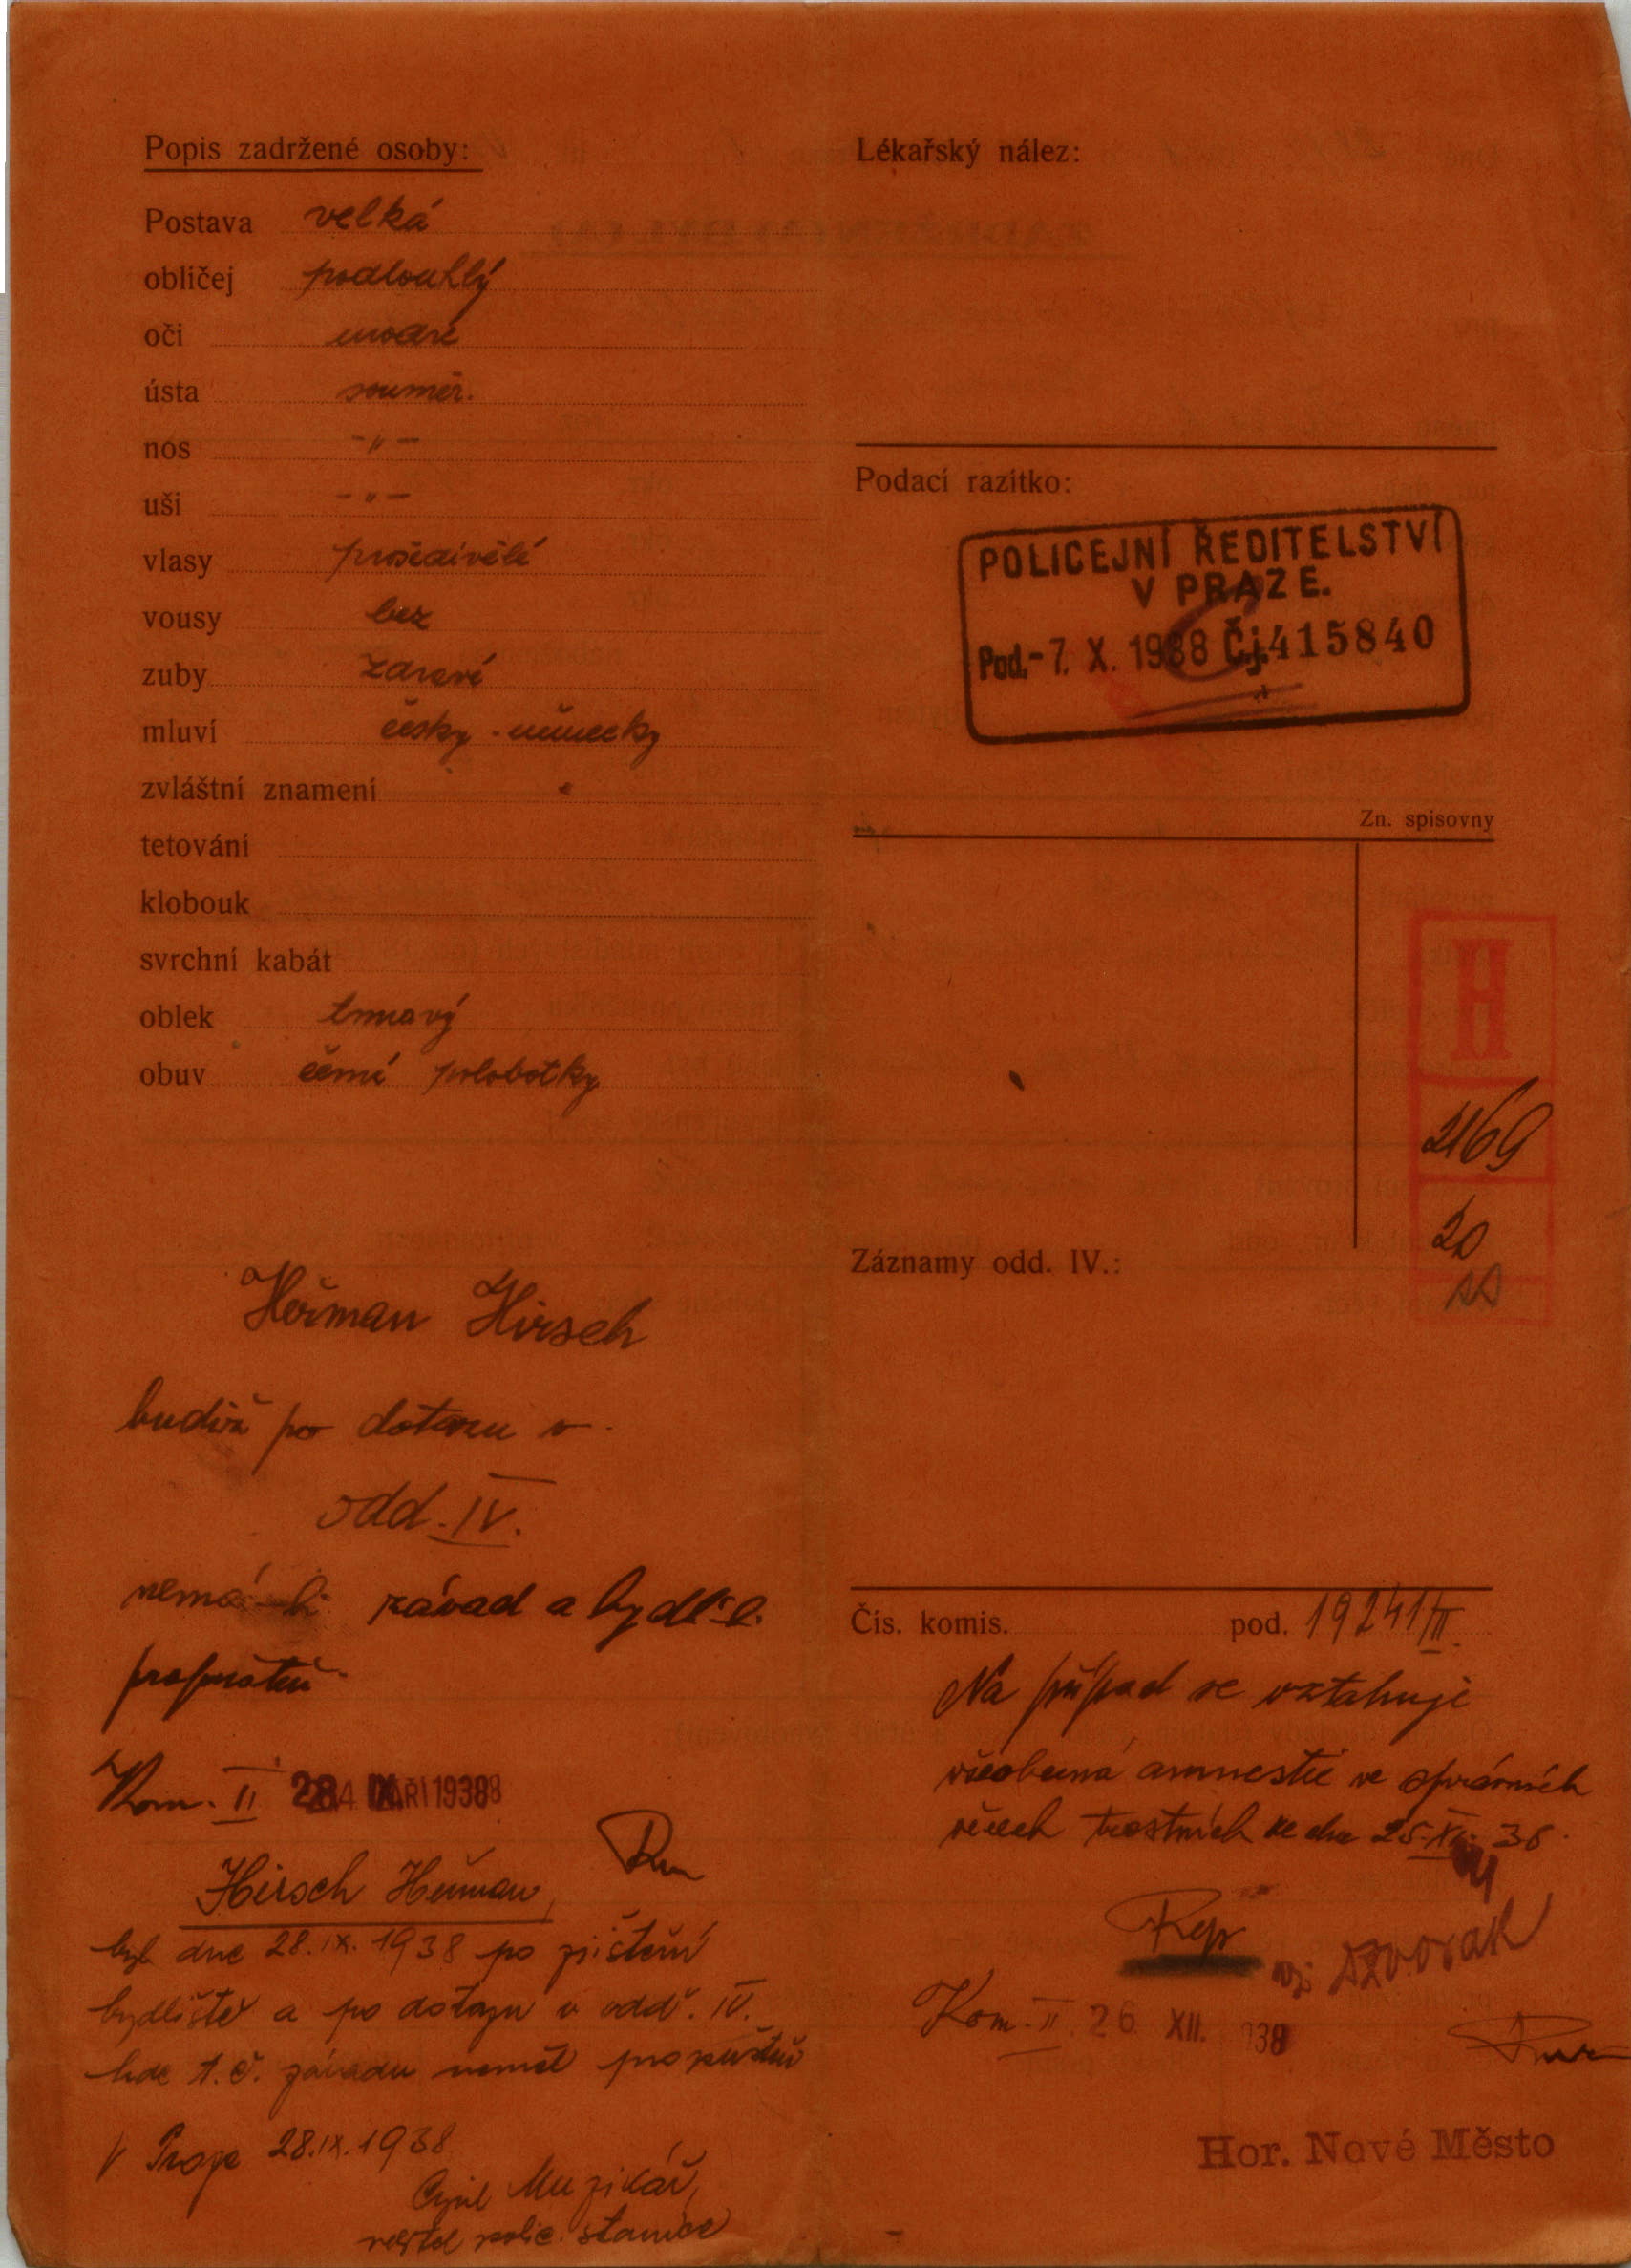 Popis zadržené osoby:
Postava velká
obličej podlouhlý
oči modré
ústa souměr.
nos -"-
uši -"-
vlasy prošedivělé
vousy bez
zuby zdravé
mluví česky - německy
zvláštní znamení
tetování
klobouk
svrchní kabát
oblek tmavý
obuv černé polobotky
Heřman Hirsch
budiž po dotazu v
odd. IV.
nemá-li závad a bydl.
propuštěn
Kom. II 28 1938
Hirsch Heřman,
byl dne 28.IX.1938 po zjištění
bydliště a po dotazu v odd. IV.
kde t.č. závadu neměl propuštěn
V Praze 28.IX.1938
Cyril Muzikář,
polic. stanice
Lékařský nález:
Podací razítko:
POLICEJNÍ ŘEDITELSTVÍ
V PRAZE.
Pod.- 7. X. 1938 Čj. 415840
Zn. spisovny
H
2169
20
Záznamy odd. IV.:
Čís. komis. pod. 19241/II.
Na případ se vztahuje
všeobecná amnestie ve správních
věcech trestních ze dne
Dvorak
Kom. II. 26 XII. 938
Hor. Nové Město